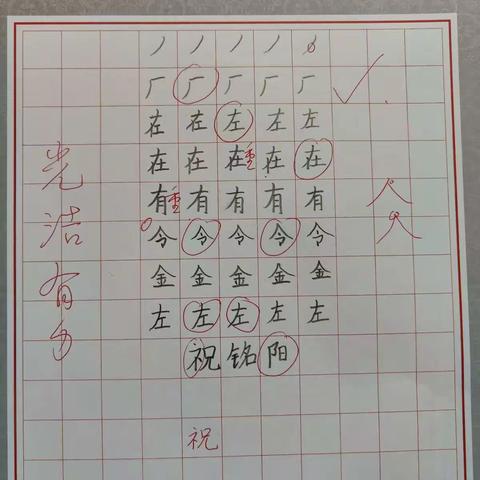 丿丿丿丿
厂厂厂厂厂
在在左左左
在在在重在
有重有有有有
令令令令令
金金金金金
左左左左左
祝铭阳
祝
光洁有力
人
人